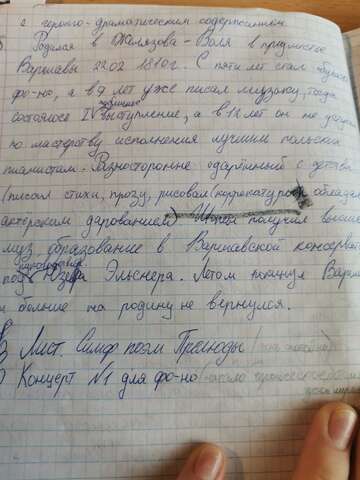 с героико-драматическим содержанием.
Родился в Желязова-Воля в предместье
Варшавы 22.02 1810г. С пяти лет стал
фо-но, а в 7 лет уже писал музыку, тогда
состоялось I выступление, а в 12 лет он не
по мастерству исполнения лучшим польским
пианистам. Разносторонне одарённый с детства
(писал стихи, прозу, рисовал обладал
актёрским дарованием) Шопен получил
муз. образование в Варшавской консерват
под Юзефа Эльснера. Летом покинул Варш
и больше на родину не вернулся.
Лист. Симф поэм Прелюды
Концерт №1 для фо-но